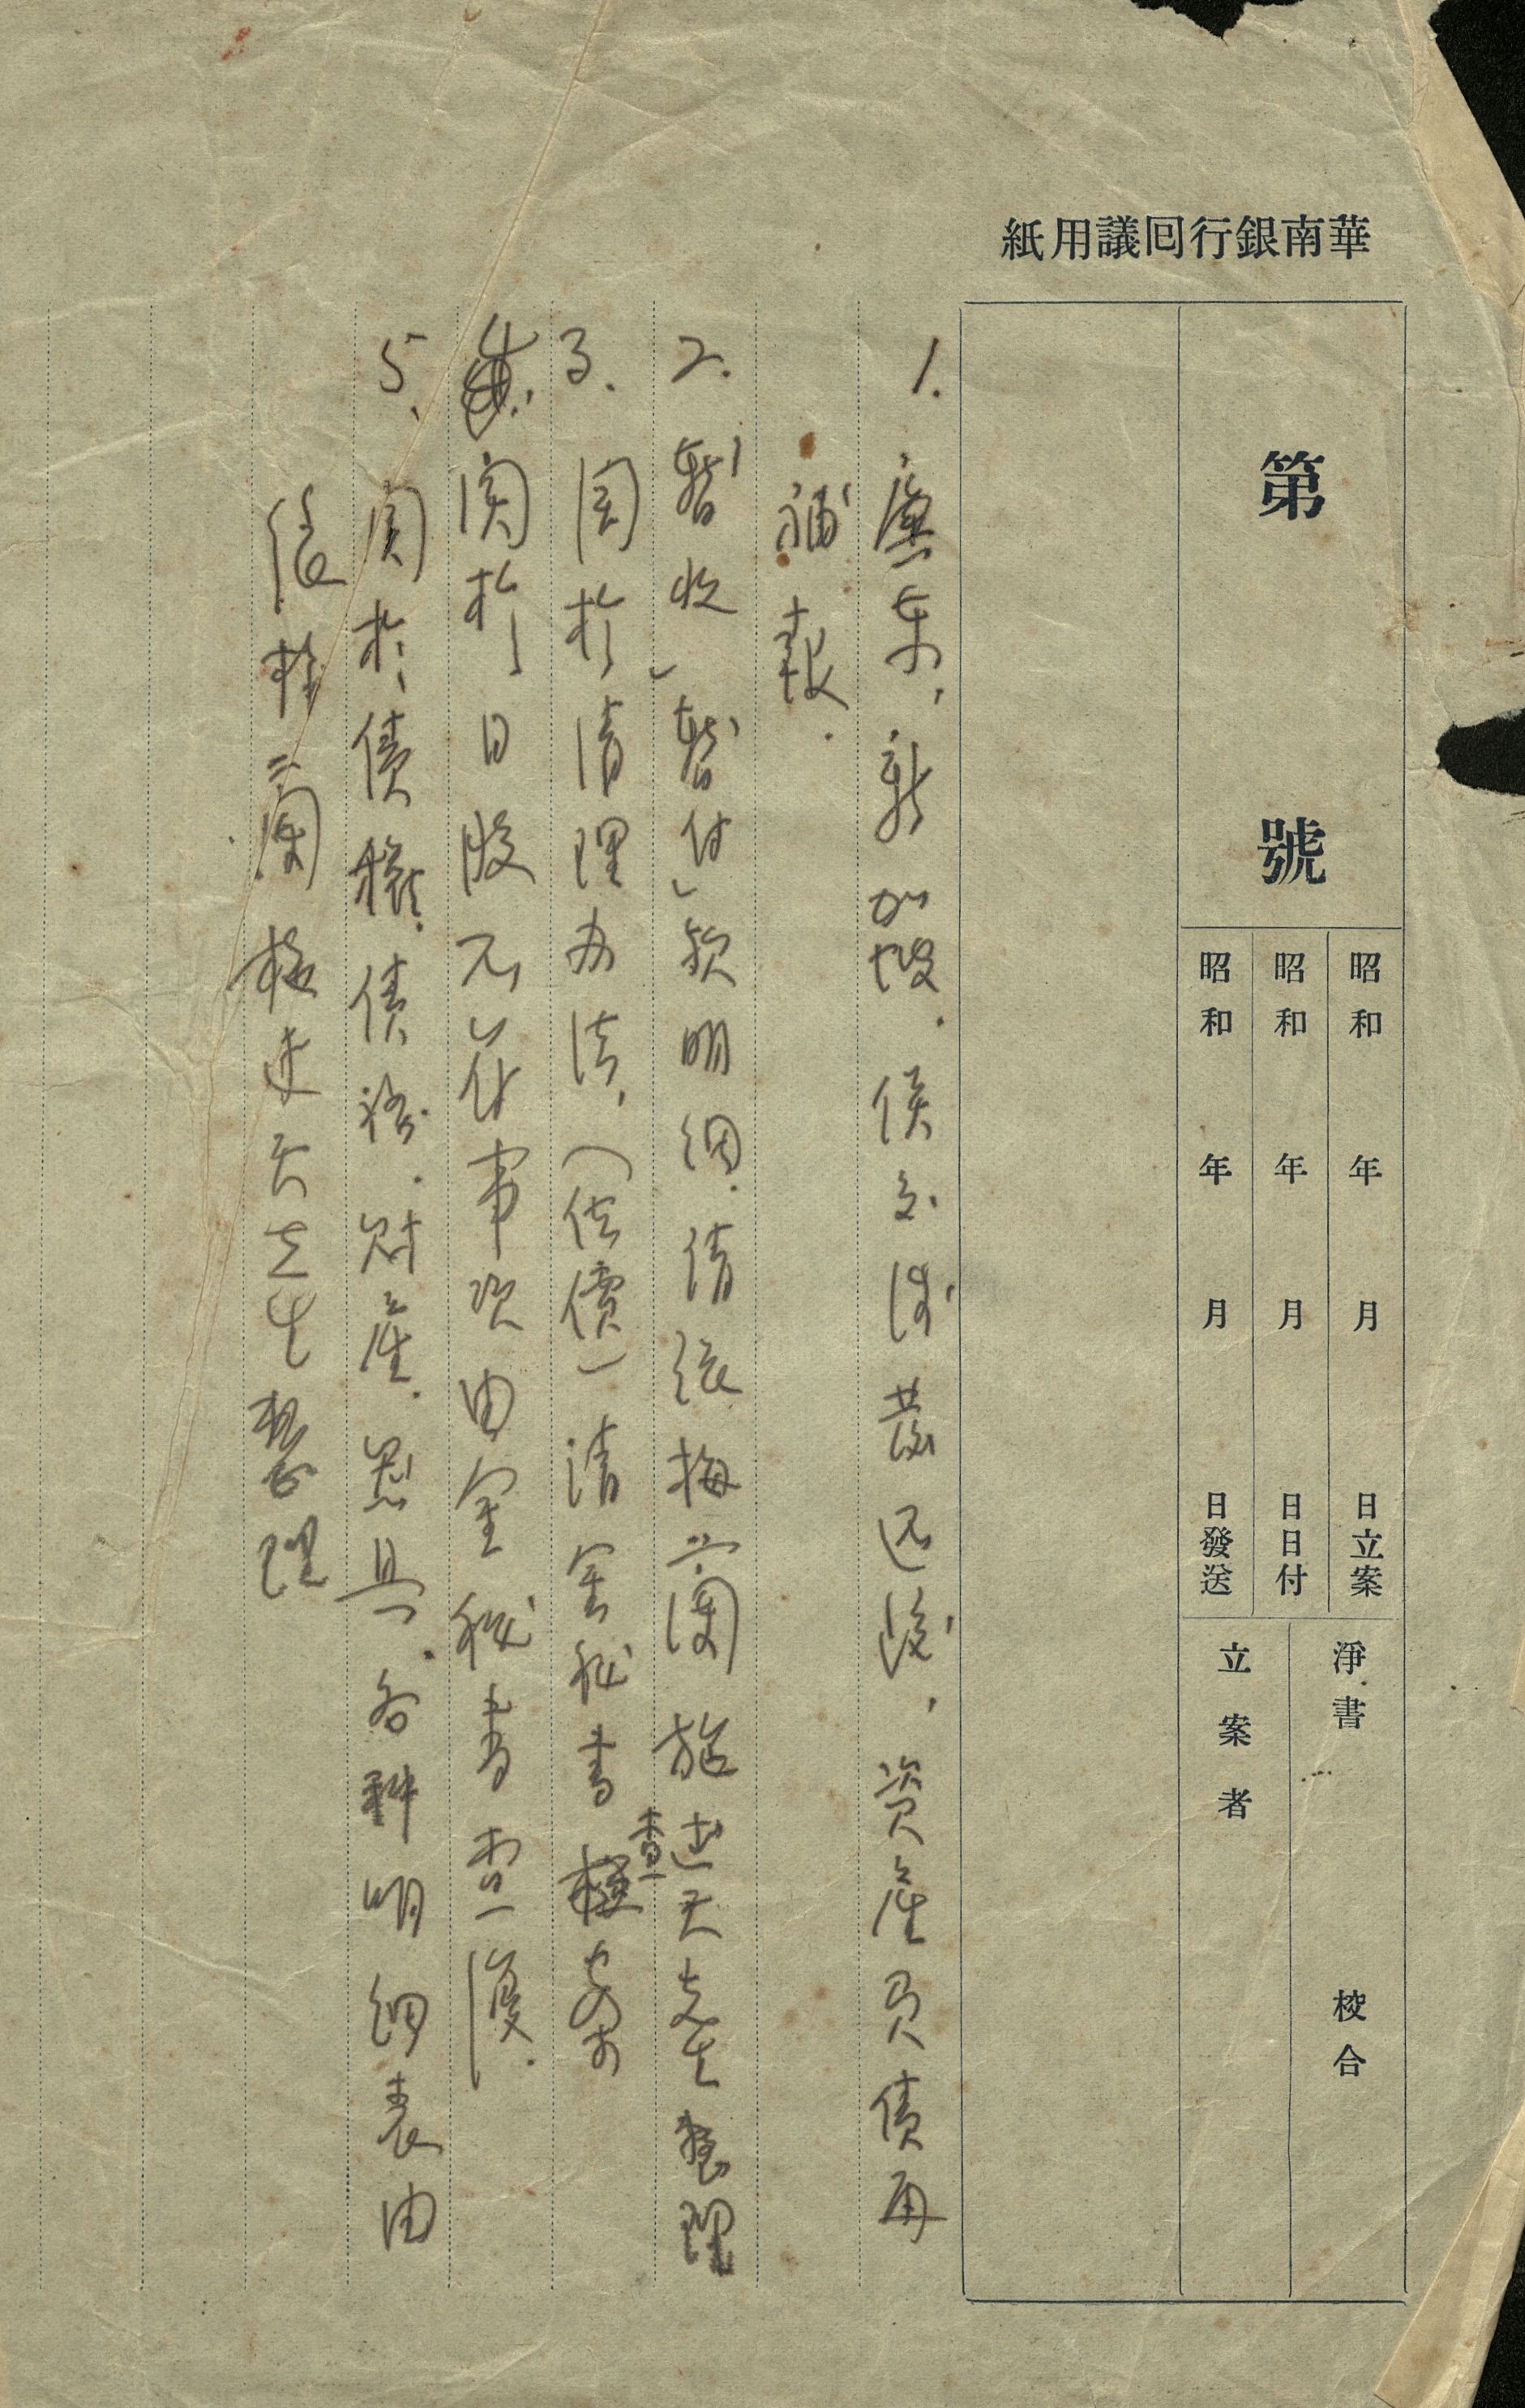 華南銀行回議用紙
第 號
昭和 年 月 日立案
昭和 年 月 日日付
昭和 年 月 日發送
淨書 校合
立案者
1. 廣東，新加坡．俟交涉發还後，資產負債再
補報．
2. 「暫收」「暫付」款明細．請張梅蘭 施述天先生整理
3. 関於清理办法，（估價）請金秘書查案
4. 関於日股 事项由金秘書查復．
5. 関於債權．債務．財產．器具．各种明細表由
張梅蘭 施述天先生整理